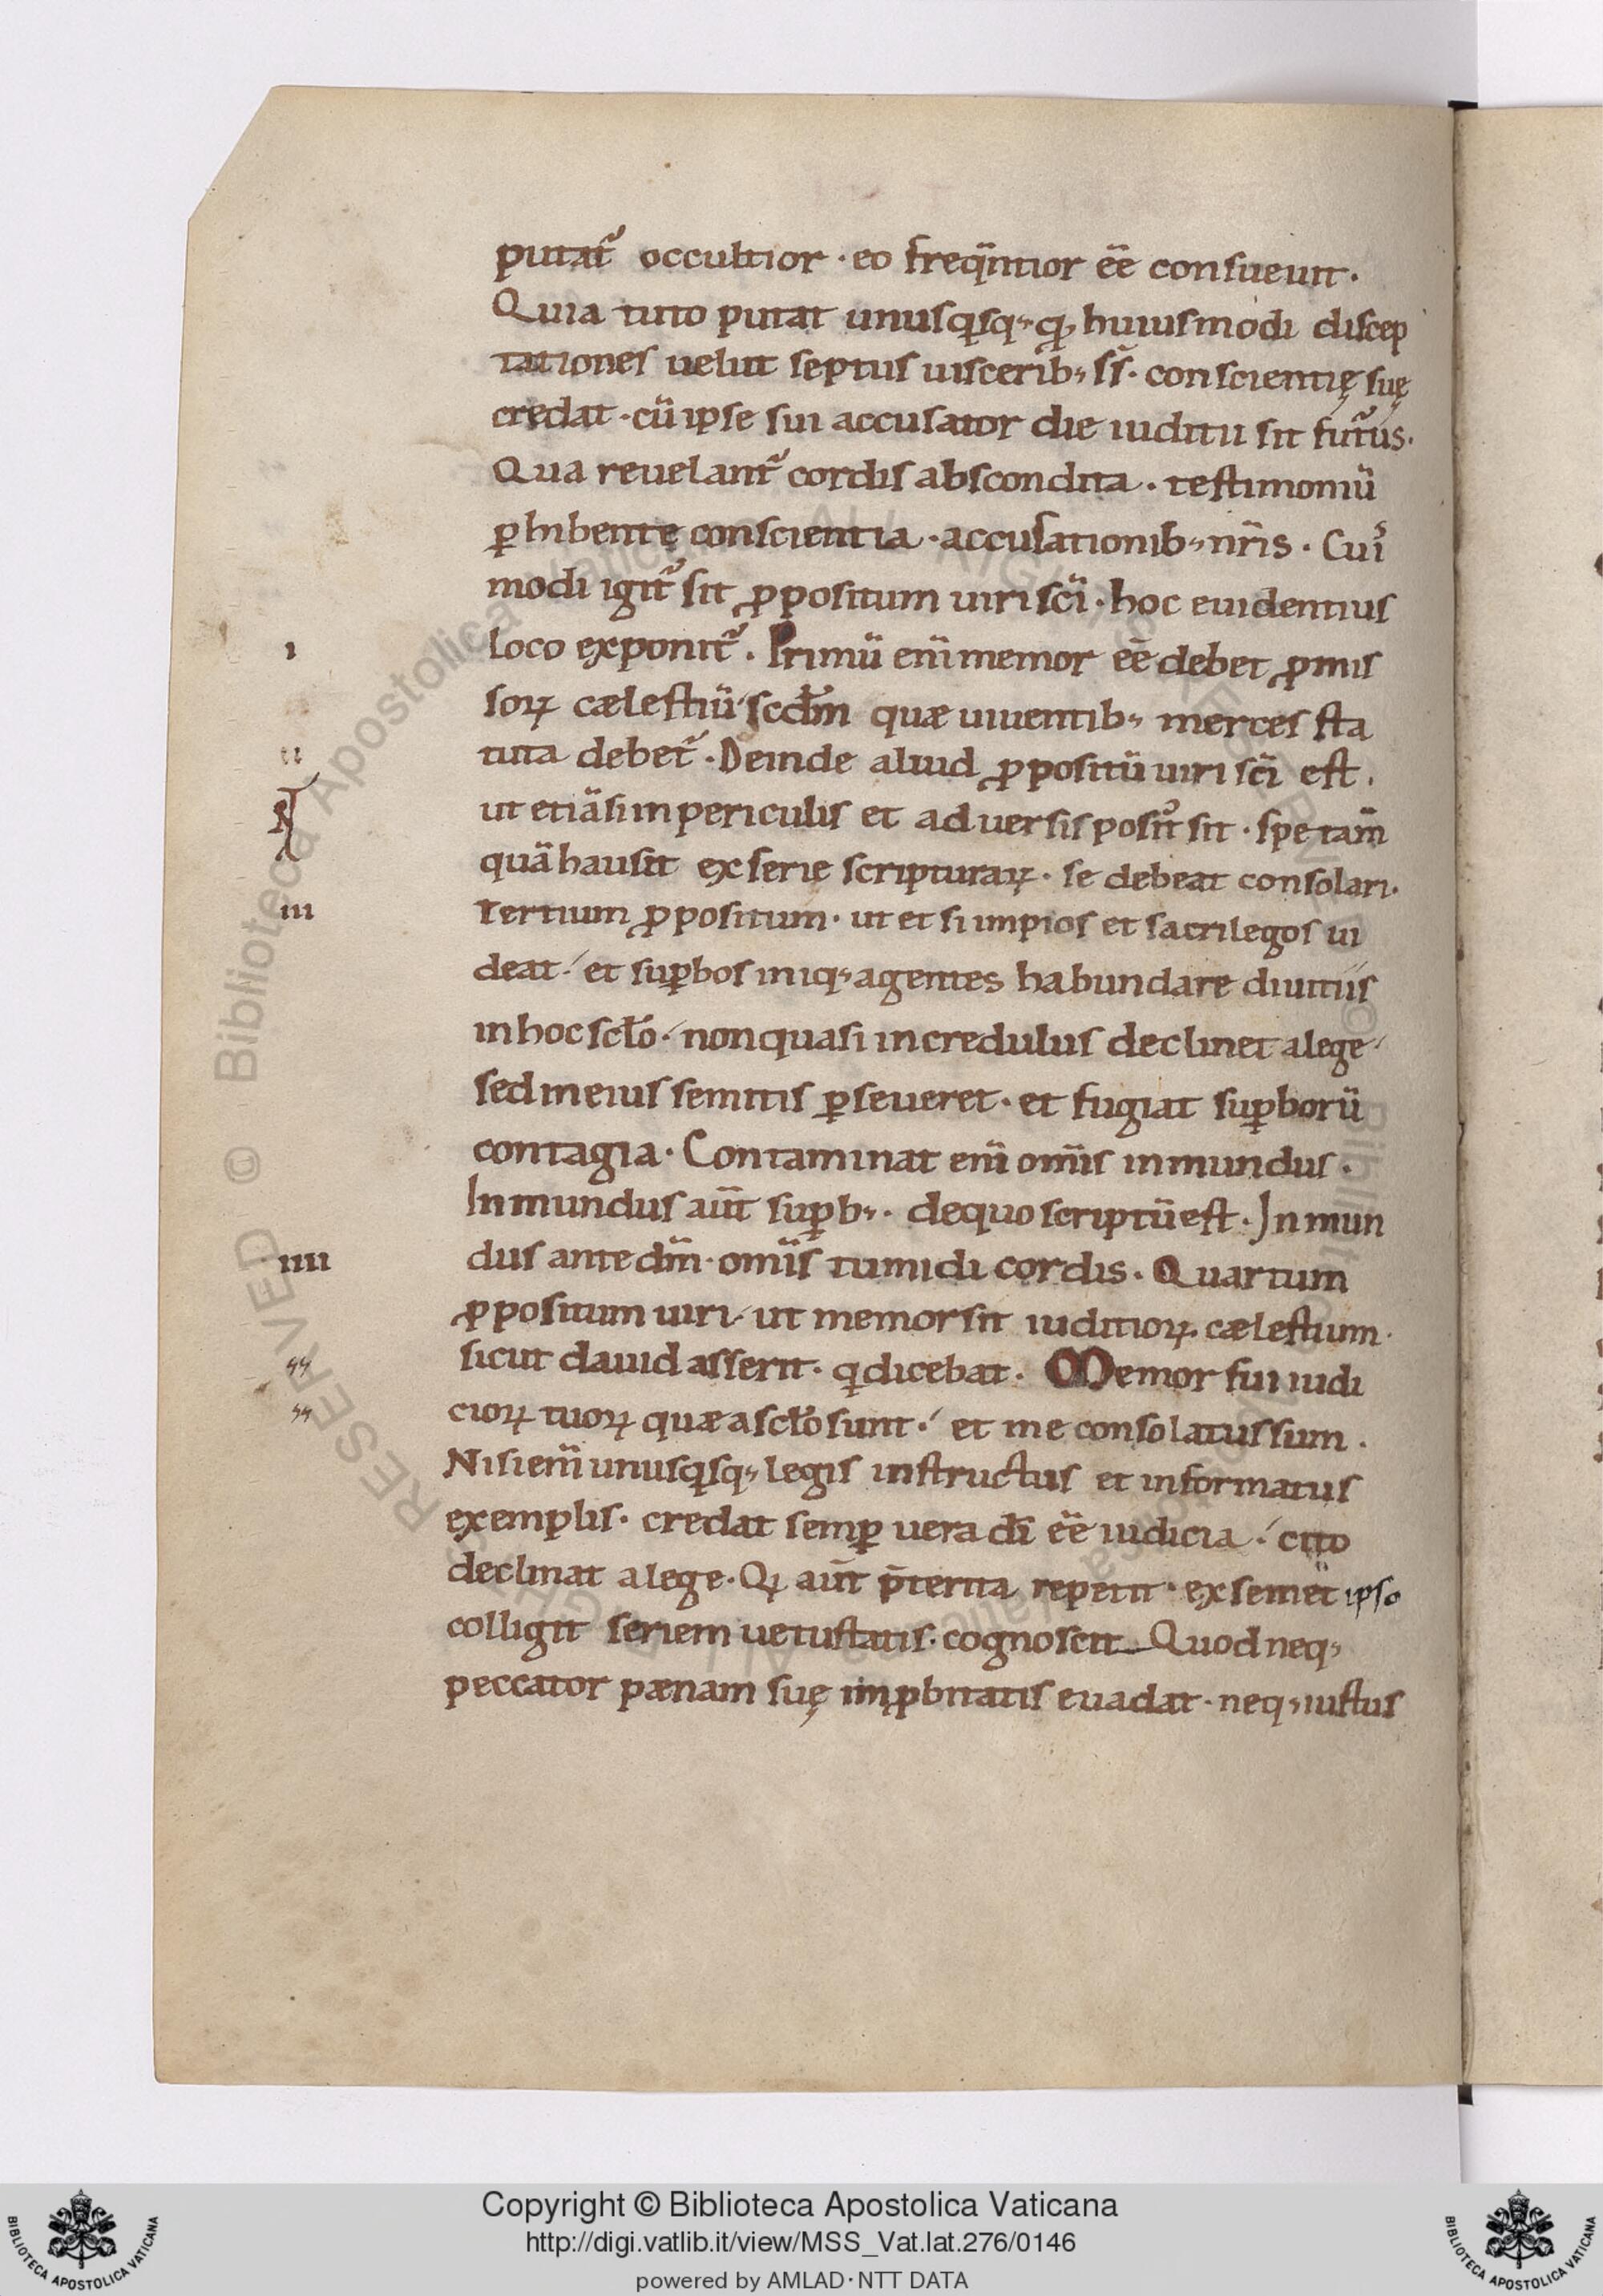 putat᷑ occultior · eo freq̅ntior ee̅ consueuit ·
Quia tuto putat unusq̣sq; q̣ huiusmodi discep
tationes uelut septus uiscerib; ss̅ · conscientię suę
credat · cu̅ ipse sui accusator die iuditii sit futur᷑us ·
Qua reuelant᷑ cordis abscondita · testimoniu̅
ꝑhibente conscientia · accusationib; nr̅is · Cui᷒
modi igit᷑ sit ꝓpositum uiri sc̅i · hoc euidentius
I
loco exponit᷑ · Primu̅ eni̅ memor ee̅ debet ꝓmis
soꝝ cælestiu̅ scd̅m quæ uiuentib; merces sta
II
tuta debet᷑ · Deinde aliud ꝓpositu̅ uiri sc̅i est ·
ut etia̅si in periculis et aduersis posit᷒ sit · spe tam̅
qua̅ hausit ex serie scripturaꝝ · se debeat consolari ·
III
Tertium ꝓpositum · ut et si impios et sacrilegos ui
deat · et suꝑbos iniq; agentes habundare diuitiis
in hoc scło · non quasi incredulus declinet a lege
sed in eius semitis ꝑseueret · et fugiat suꝑboru̅
contagia · Contaminat eni̅ omi̅s inmundus ·
Inmundus aut̅ suꝑb; · de quo scriptu̅ est · Inmun
IIII
dus ante dm̅ · omi̅s tumidi cordis · Quartum
ꝓpositum uiri · ut memor sit iuditioꝝ cælestium ·
sicut dauid asserit · q̣ dicebat · Memor fui iudi
cioꝝ tuoꝝ quæ a scło sunt · et me consolatus sum ·
Nisi eni̅ unusq̣sq; legis instructus et informatus
exemplis · credat semꝑ uera di̅ ee̅ iudicia · cito
declinat a lege · Q̣ aut̅ p̅terita repetit · ex semet ipso
colligit seriem uetustatis · cognoscit Quod neq;
peccator pænam suę imꝓbitatis euadat · neq; iustus
Copyright © Biblioteca Apostolica Vaticana
http://digi.vatlib.it/view/MSS_Vat.lat.276/0146
powered by AMLAD·NTT DATA
BIBLIOTECA APOSTOLICA VATICANA
BIBLIOTECA APOSTOLICA VATICANA